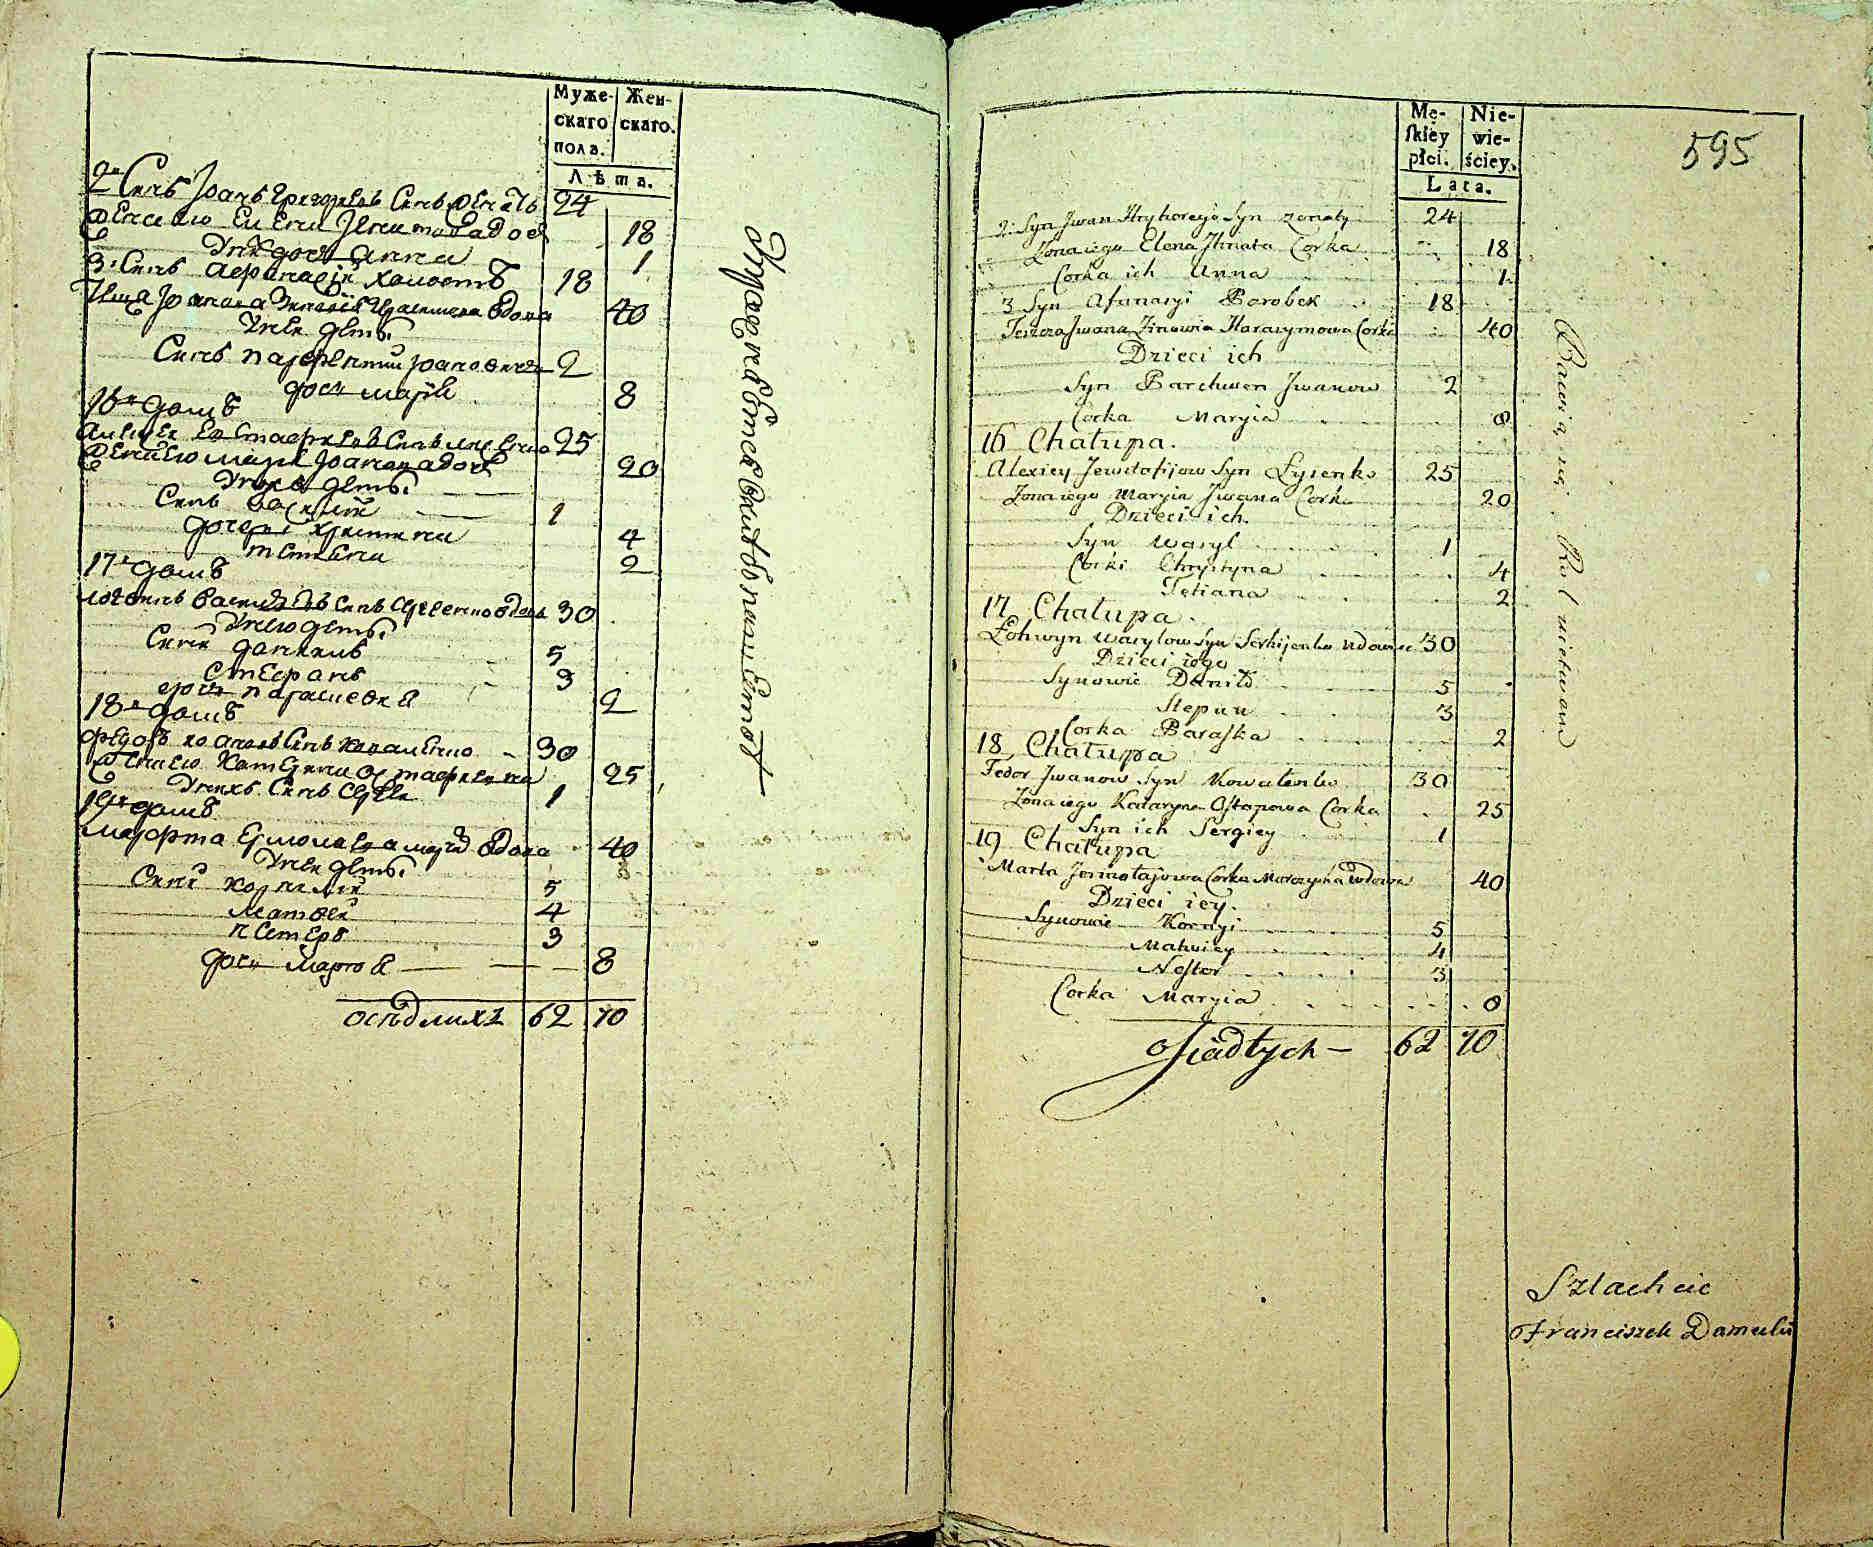 Муже-
скаго
пола.
Жен-
скаго.
Лѣта.
2й Синъ Іванъ Григорьевъ Синъ женатъ 24
жена ево Елена Игнатова доч 18
Ихъ дочь Анна 1
3й Синъ Афанасій холостъ 18
Теща Іванова Зиновія Герасимова вдова 40
Ихъ дети
Синъ Парфентий Івановичъ 2
дочь Марія 8
16й домъ
Алексей Евстафиевъ Синъ Лисенко 25
жена ево Марія Іванова дочь 20
Ихъ дети
Синъ Василій 1
дочери Христина 4
Тетяна 2
17й домъ
Логвинъ Василиевъ Синъ Сергиенко вдовъ 30
Ихъ дети
Сини Даниилъ 5
Стефанъ 3
дочь Парасцевія 2
18й домъ
Федоръ Ивановъ Синъ Коваленко 30
жена ево Катерина Остафиевна 25
Ихъ Синъ Сергей 1
19й домъ
Марфта Ермолаева вдова 40
Ихъ дети
Сини Корнилій 5
Матвей 4
Нестеръ 3
дочь Марія 8
осѣдлихъ 62 70
Mę-
ſkiey
płci.
Nie-
wie-
ściey.
Lata.
595
2. Syn Jwan Hryhorego Syn żonaty 24
Żona iego Elena Jhnata Corka 18
Corka ich Anna 1
3 Syn Afanasyi Parobek 18
Teszcza Jwana Zinowia Harasymowa Corka 40
Dzieci ich
Syn Parchwen Jwanow 2
Corka Maryia 8
16 Chałupa.
Alexiey Jewstafijow Syn Łysenko 25
Żona iego Maryia Jwana Corka 20
Dzieci ich.
Syn Wasyl 1
Corki Chrystyna 4
Tetiana 2
17 Chałupa.
Łohwyn Wasylow Syn Serhijenko wdowiec 30
Dzieci iego
Synowie Daniło 5
Stepan 3
Corka Paraſka 2
18 Chałupa
Fedor Jwanow Syn Kowalenko 30
Żona iego Kataryna Oſtapowa Corka 25
Syn ich Sergiey 1
19 Chałupa
Marta Jermołajowa Corka wdowa 40
Dzieci iey.
Synowie Kornyi 5
Matwiey 4
Neſtor 3
Corka Maryia 8
oſiadłych — 62 70
Szlachcic
Franciszek